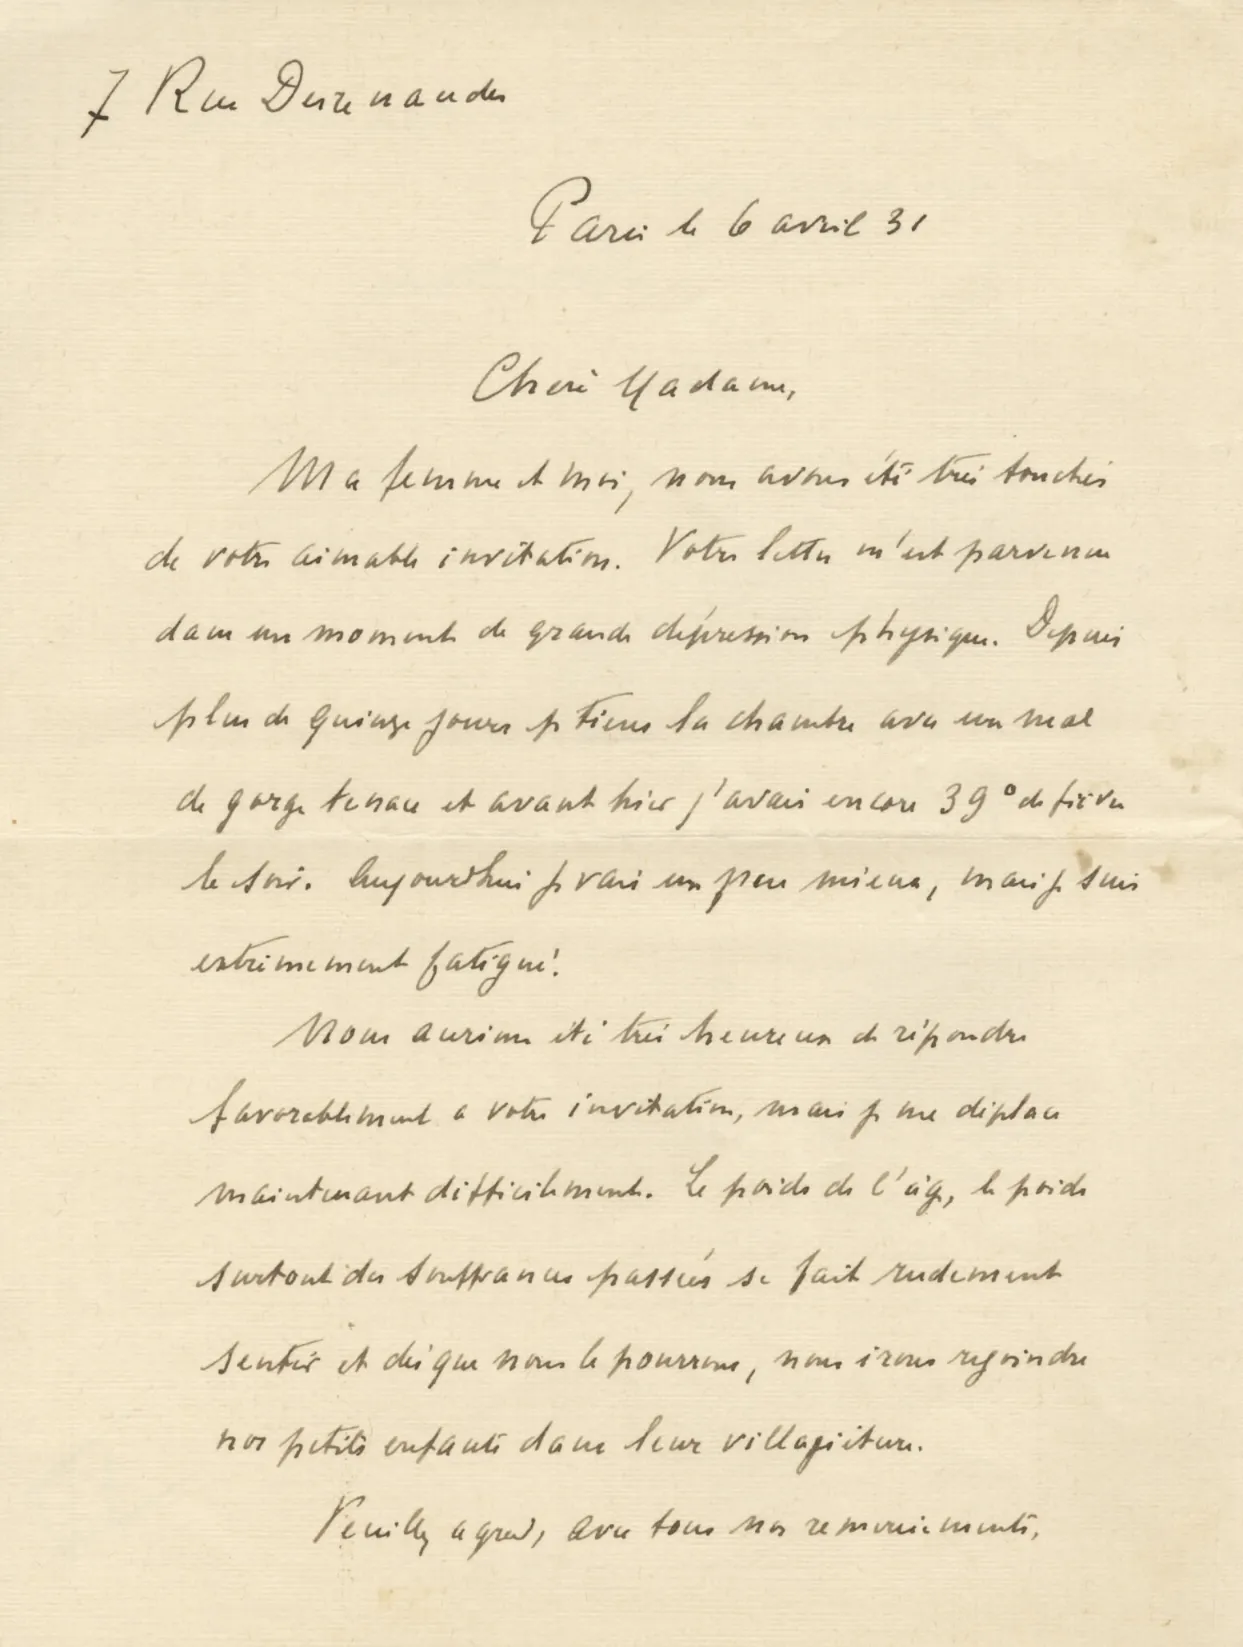 7 Rue Desrenaudes
Paris le 6 avril 31
Chère Madame,
Ma femme et moi, nous avons été très touchés
de votre aimable invitation. Votre lettre m'est parvenue
dans un moment de grande dépression physique. Depuis
plus de quinze jours je tiens la chambre avec un mal
de gorge tenace et avant hier j'avais encore 39° de fièvre
le soir. Aujourd'hui je vais un peu mieux, mais je suis
extrêmement fatigué.
Nous aurions été très heureux de répondre
favorablement a votre invitation, mais je me déplace
maintenant difficilement. Le poids de l'âge, le poids
surtout des souffrances passées se fait rudement
sentir et dès que nous le pourrons, nous irons rejoindre
nos petits enfants dans leur villagiature.
Veuillez agréer, avec tous nos remerciements,